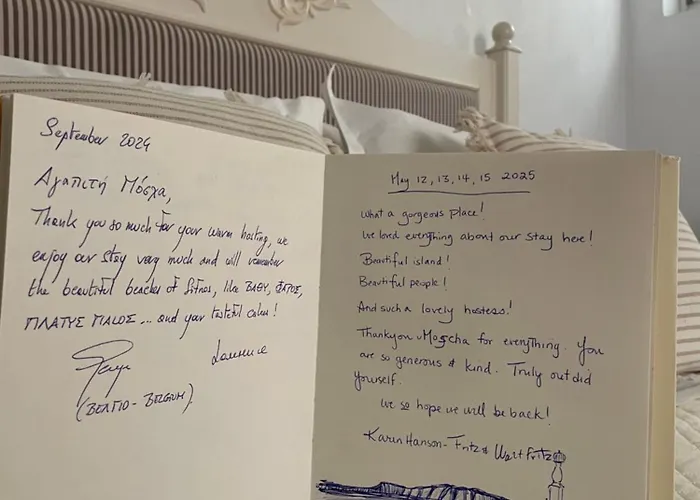 September 2024
Αγαπιτή Μόσχα,
Thank you so much for your warm hosting, we
enjoy our stay very much and will remember
the beautiful beaches of Sifnos, like ΒΑΘΥ, ΦΑΡΟΣ,
ΠΛΑΤΥΣ ΓΙΑΛΟΣ ... and your tasteful cakes!
Laurence
(ΒΕΛΓΙΟ - BELGIUM)
May 12, 13, 14, 15 2025
What a gorgeous place!
We loved everything about our stay here!
Beautiful island!
Beautiful people!
And such a lovely hostess!
Thankyou Moscha for everything. You
are so generous & kind. Truly out did
yourself.
We so hope we will be back!
Karen Hanson-Fritz & Walt Fritz